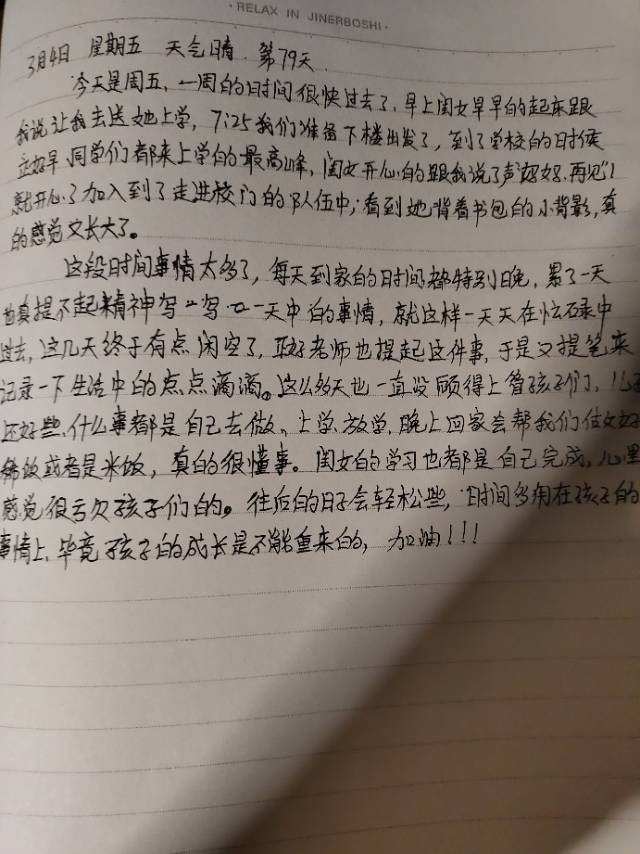 · RELAX IN JINERBOSHI ·
3月4日 星期五 天气晴 第79天
今天是周五,一周的时间很快过去了,早上闺女早早的起床跟
我说让我去送她上学,7:25我们准备下楼出发了,到了学校的时侯
正好早同学们都来上学的最高峰,闺女开心的跟我说了声“好好,再见”!
就开心了加入到了走进校门的队伍中,看到她背着书包的小背影,真
的感觉又长大了。
这段时间事情太多了,每天到家的时间都特别晚,累了一天
也真提不起精神写一写一天中的事情,就这样一天天在忙碌中
过去,这几天终于有点闲空了,正好老师也提起这件事,于是又提笔来
记录一下生活中的点点滴滴。这么多天也一直没顾得上管孩子们,儿子
还好些,什么事都是自己去做、上学放学,晚上回家会帮我们做好
稀饭或者是米饭,真的很懂事。闺女的学习也都是自己完成,心里
感觉很亏欠孩子们的。往后的日子会轻松些,时间多用在孩子的
事情上,毕竟孩子的成长是不能重来的,加油!!!